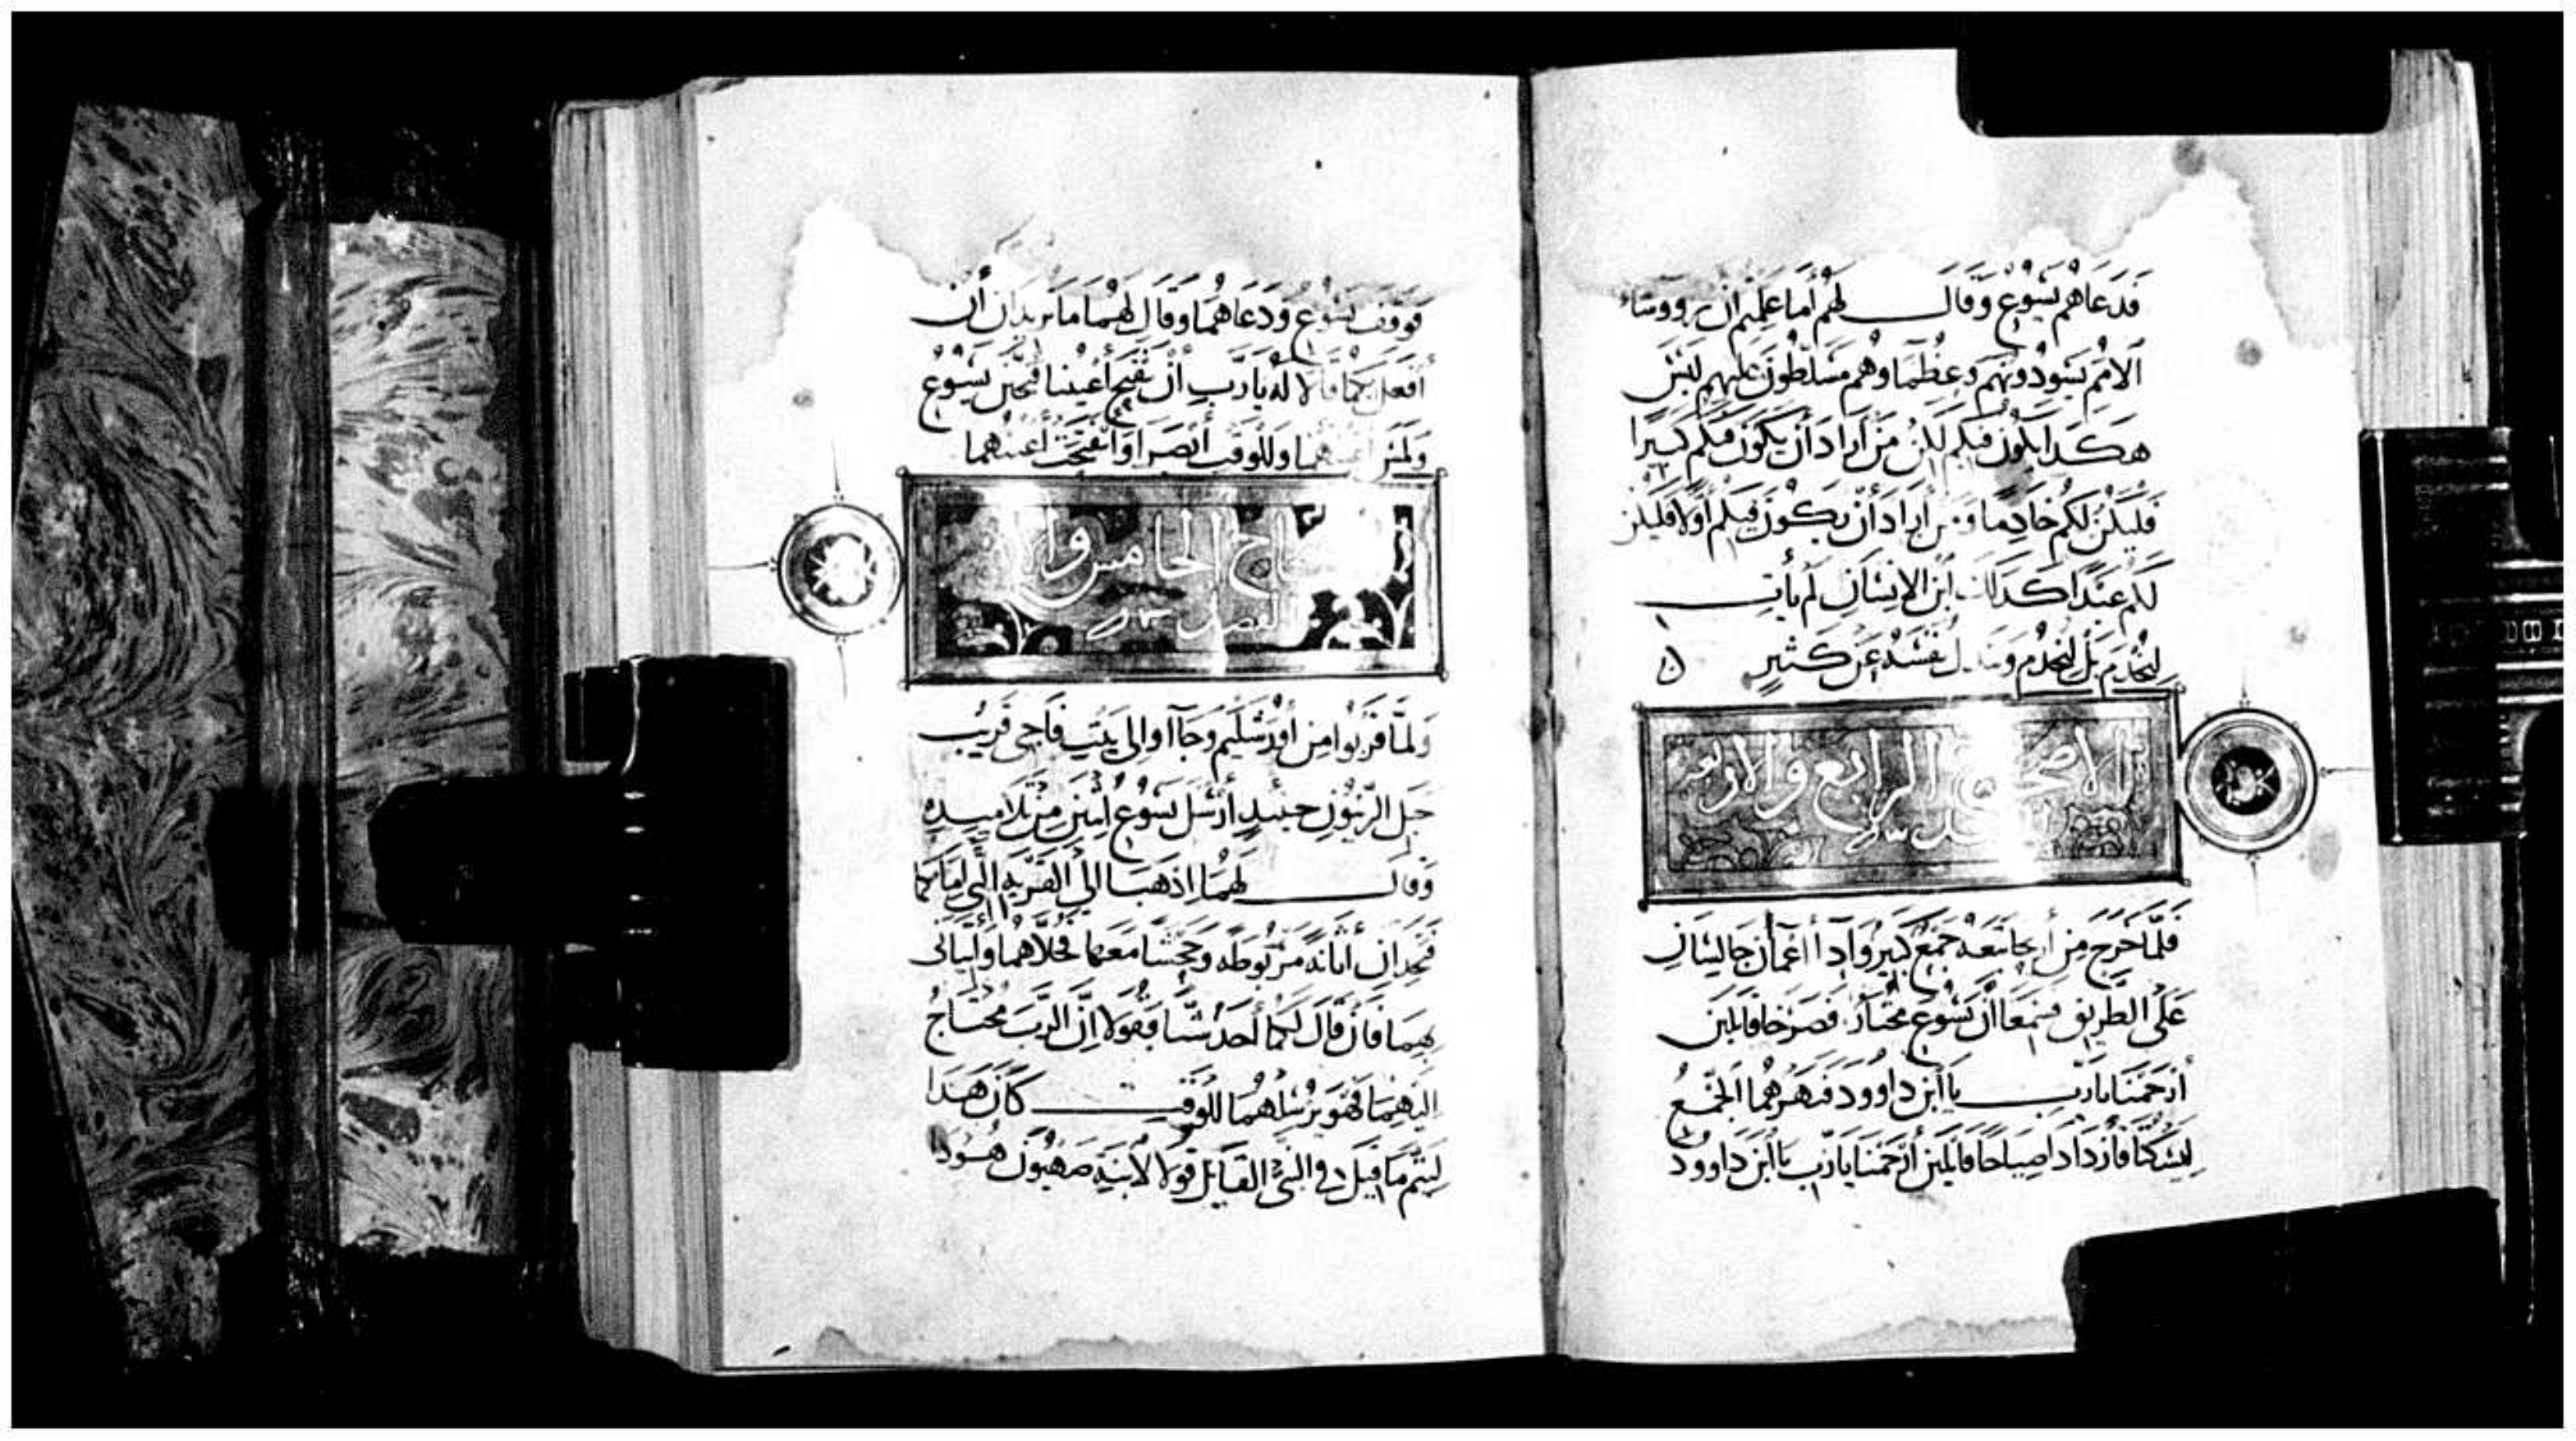 فدعاهم يسوع وقال لهم أما علمتم ان رووساء
الامم يسودونهم وعظماوهم مسلطون عليهم ليس
هكدا يكون فيكم لكن من أراد أن يكون فيكم كبيرا
فليكن لكم خادما ومن أراد أن يكون فيكم أولا فليكن
لكم عبدا كدلك ابن الانسان لم يأت
ليخدم بل ليخدم ويبدل نفسه عن كثير
الاصحاح الرابع والاربعون
فلما خرج من أريحا تبعه جمع كبير واداأعميان جالسان
على الطريق فسمعا أن يسوع مجتاز فصرخا قايلين
أرحمنا يا رب يا ابن داوود فنهرهما الجمع
ليسكتا فازدادا صياحا قايلين أرحمنا يا رب يا ابن داوود
فوقف يسوع ودعاهما وقال لهما ما تريدان أن
أفعل بكما قالا له يا رب أن تفتح أعيننا فتحنن يسوع
ولمس أعينهما وللوقت أبصرا وانفتحت أعينهما
الخامس
الفصل
ولما قربوا من أورشليم وجاأوا الى بيت فاجي قريب
جبل الزيتون حينيد أرسل يسوع اثنين من تلاميده
وقال لهما اذهبا الي القريه التي امامكما
فتجدان أتانه مربوطه وجحشا معها فحلاهما وأتياني
بهما فأن قال لكما أحد شيا فقولا إن الرب محتاج
اليهما فهو يرسلهما للوقت كان هدا
ليتم ما قيل في النبي القايل قولا لابنة صهيون هودا